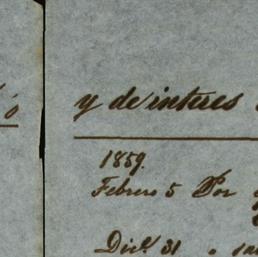 ó
y de interes
1859.
Febrero 5 Por
Dic.e 31 " sa